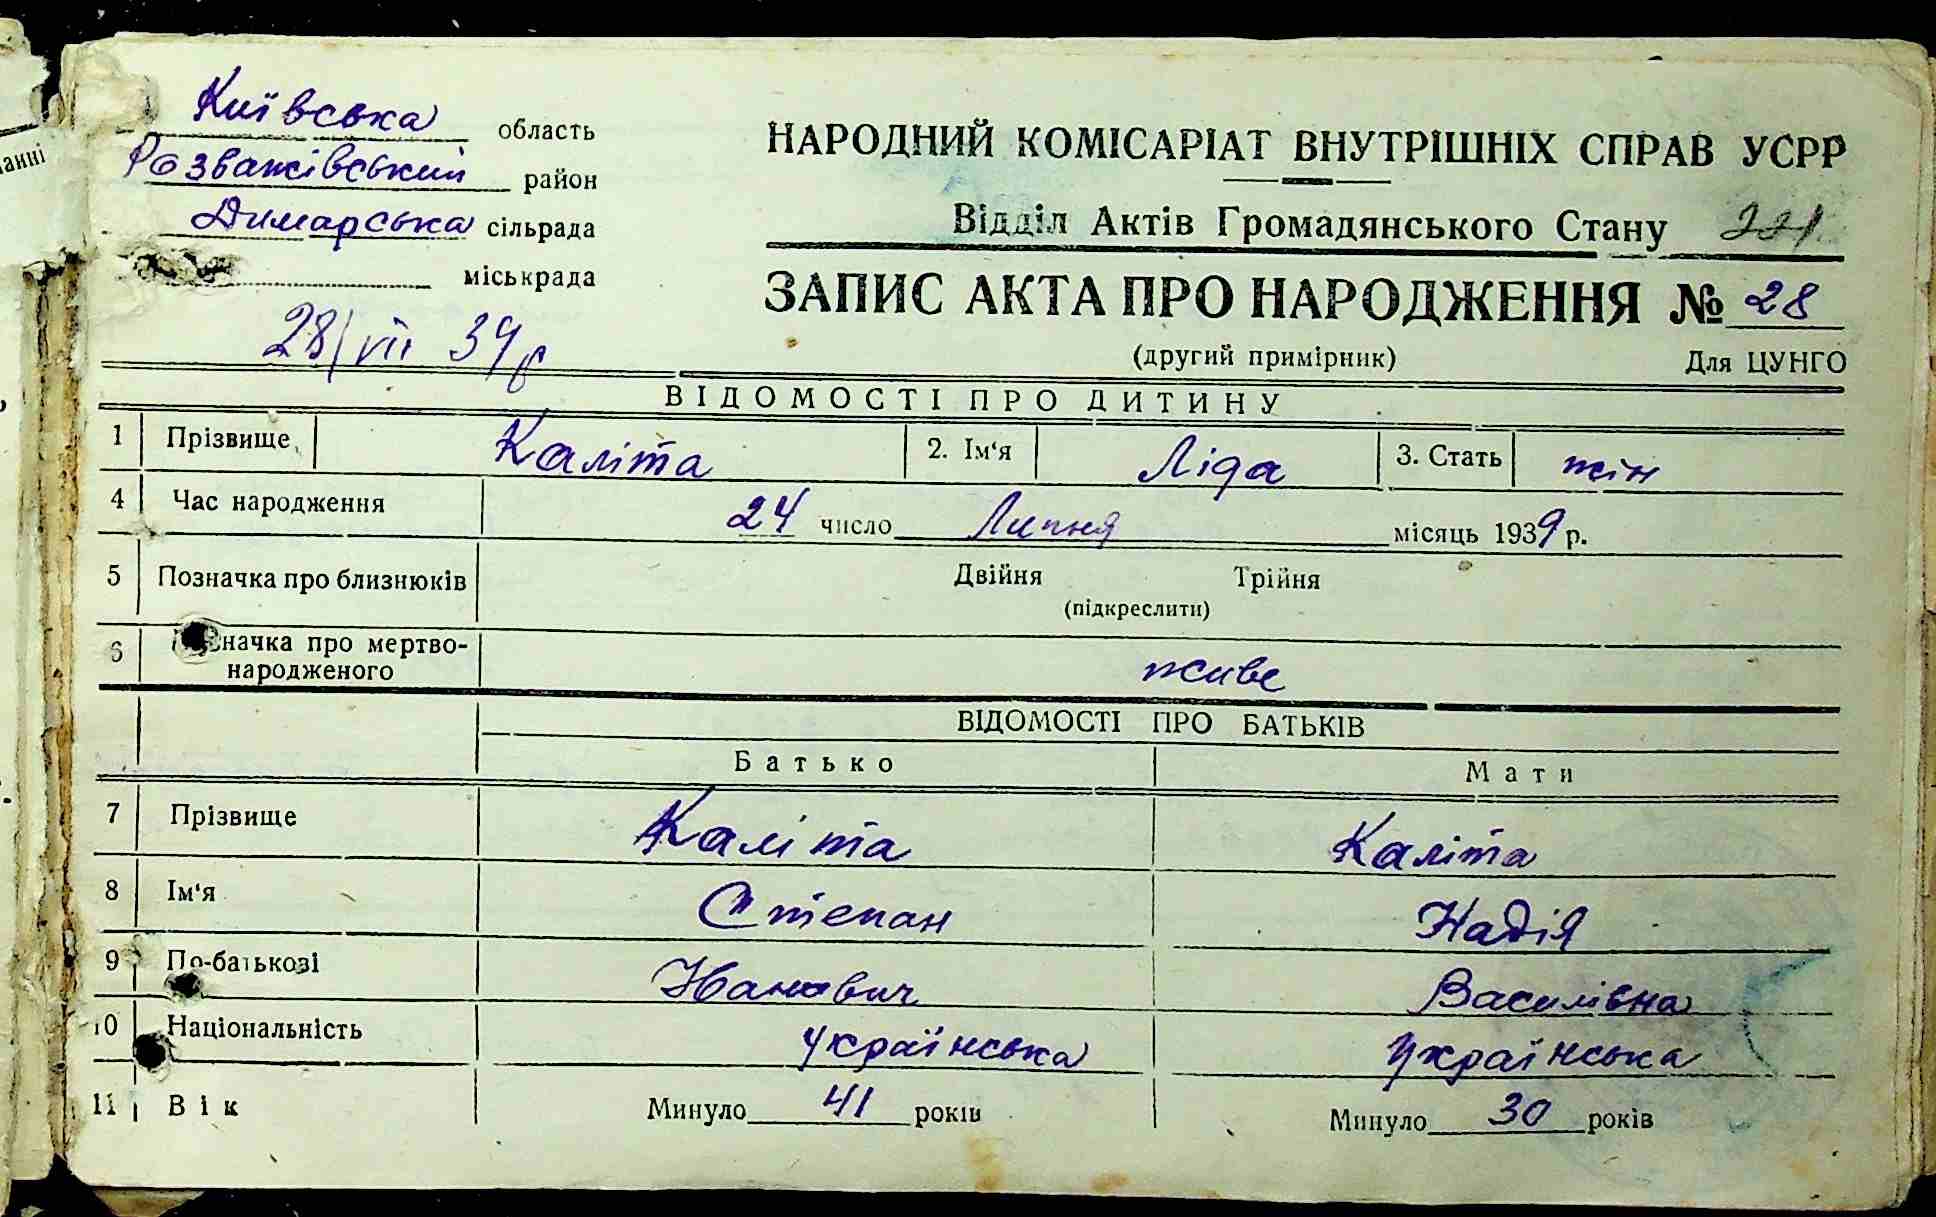 Київська область
Розважівський район
Димарська сільрада
міськрада
28/VII 39 р
НАРОДНИЙ КОМІСАРІАТ ВНУТРІШНІХ СПРАВ УСРР
Відділ Актів Громадянського Стану
ЗАПИС АКТА ПРО НАРОДЖЕННЯ № 28
(другий примірник) Для ЦУНГО
ВІДОМОСТІ ПРО ДИТИНУ
1 Прізвище Каліта 2. Ім'я Ліда 3. Стать жін
4 Час народження 24 число Липня місяць 1939 р.
5 Позначка про близнюків Двійня Трійня
(підкреслити)
6 значка про мертво-
народженого живе
ВІДОМОСТІ ПРО БАТЬКІВ
Батько Мати
7 Прізвище Каліта Каліта
8 Ім'я Степан Надія
9 По-батькові Іванович Василівна
10 Національність українська українська
11 Вік Минуло 41 років Минуло 30 років
анні